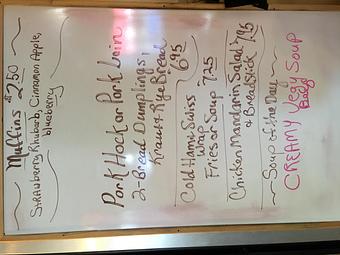 Muffins $2.50
Strawberry Rhubarb, Cinnamon Apple,
blueberry
Pork Hock or Pork Loin
2-Bread Dumplings,
Kraut & Rye Bread
6.95
Cold Ham & Swiss
Wrap
Fries or Soup 7.25
Chicken Mandarin Salad 7.95
& Breadstick
Soup of the Day
CREAMY Vegy Soup